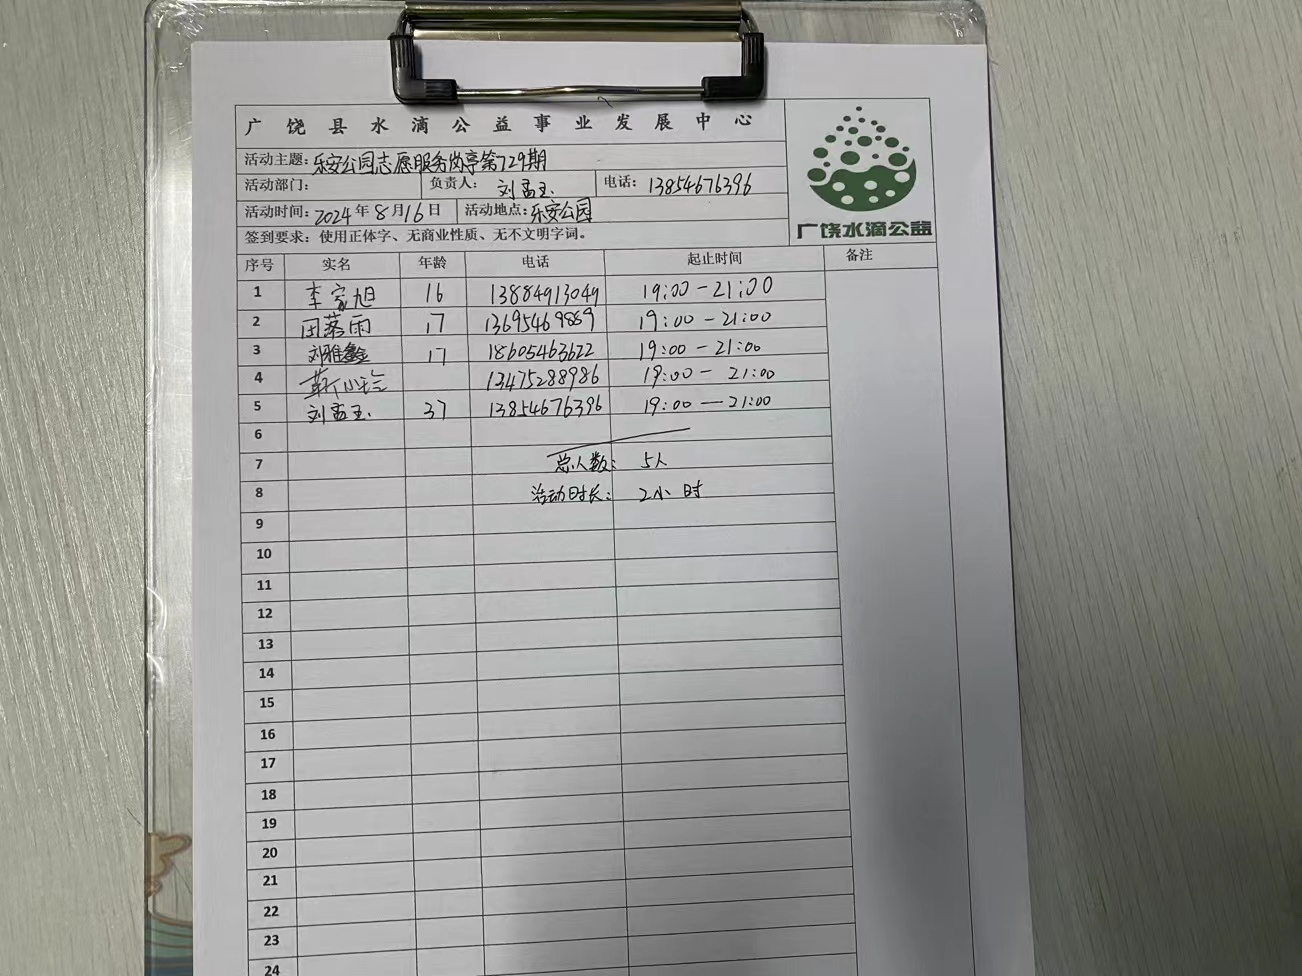 广饶县水滴公益事业发展中心
活动主题：乐安公园志愿服务岗亭第729期
活动部门： 负责人：刘孟玉 电话：13854676396
活动时间：2024年8月16日 活动地点：乐安公园
签到要求：使用正体字、无商业性质、无不文明字词。
广饶水滴公益
序号 实名 年龄 电话 起止时间 备注
1 李家旭 16 13884913049 19:00-21:00
2 田落雨 17 13695469889 19:00-21:00
3 刘雅鑫 17 18605463622 19:00-21:00
4 13475288986 19:00-21:00
5 刘孟玉 37 13854676396 19:00-21:00
6
7 总人数：5人
8 活动时长：2小时
9
10
11
12
13
14
15
16
17
18
19
20
21
22
23
24